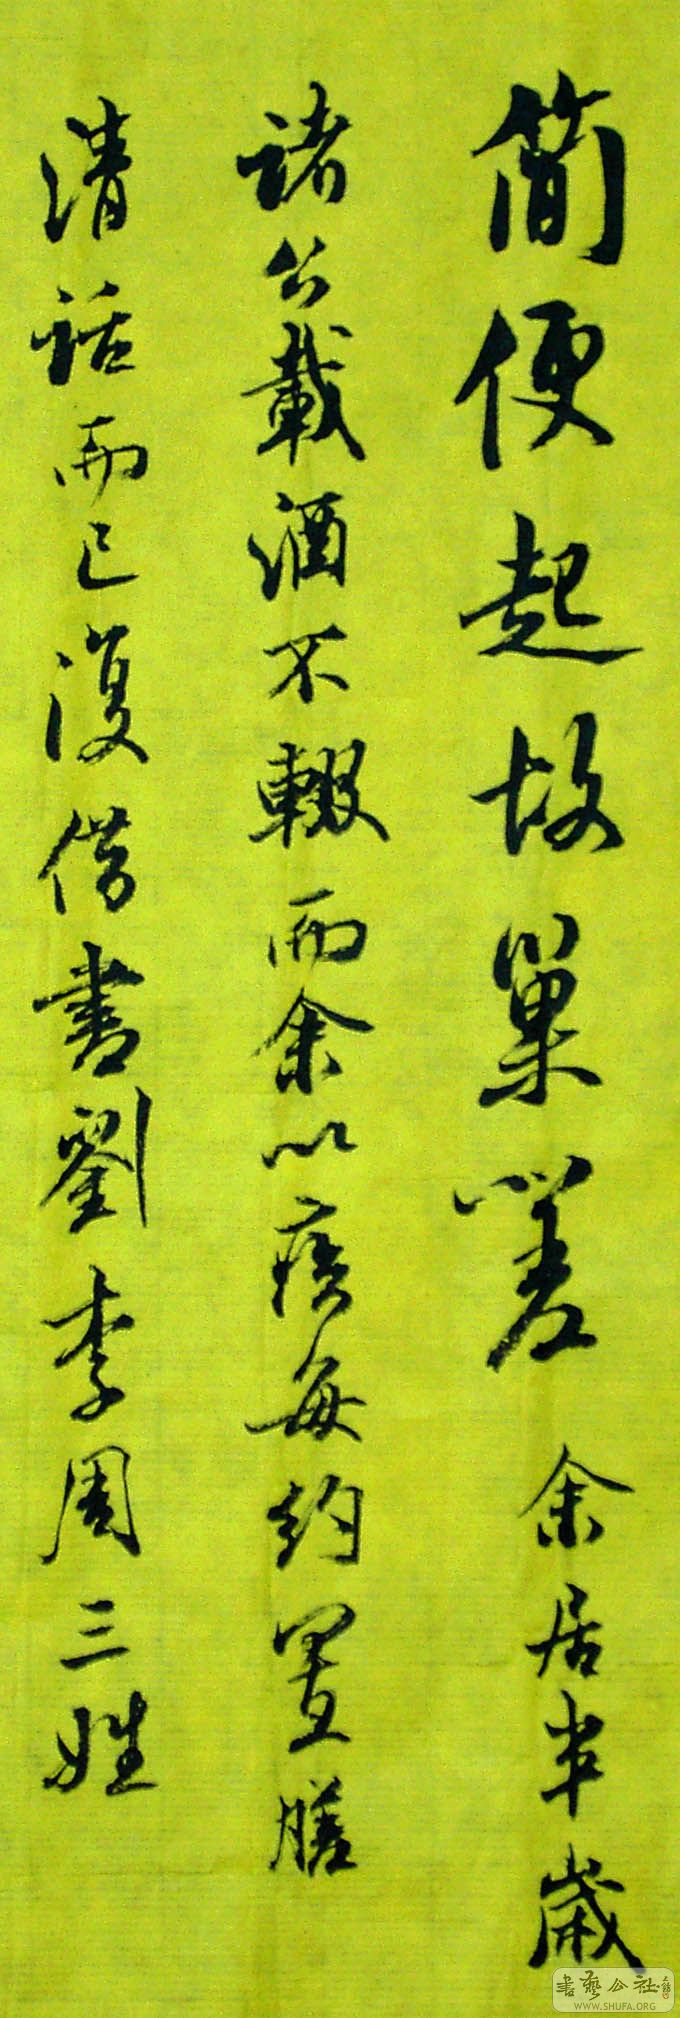 簡便起故巢嗟余居半歲
諸公載酒不輟而余以疾每約置膳
清話而已復借書劉李周三姓
書藝公社
WWW.SHUFA.ORG